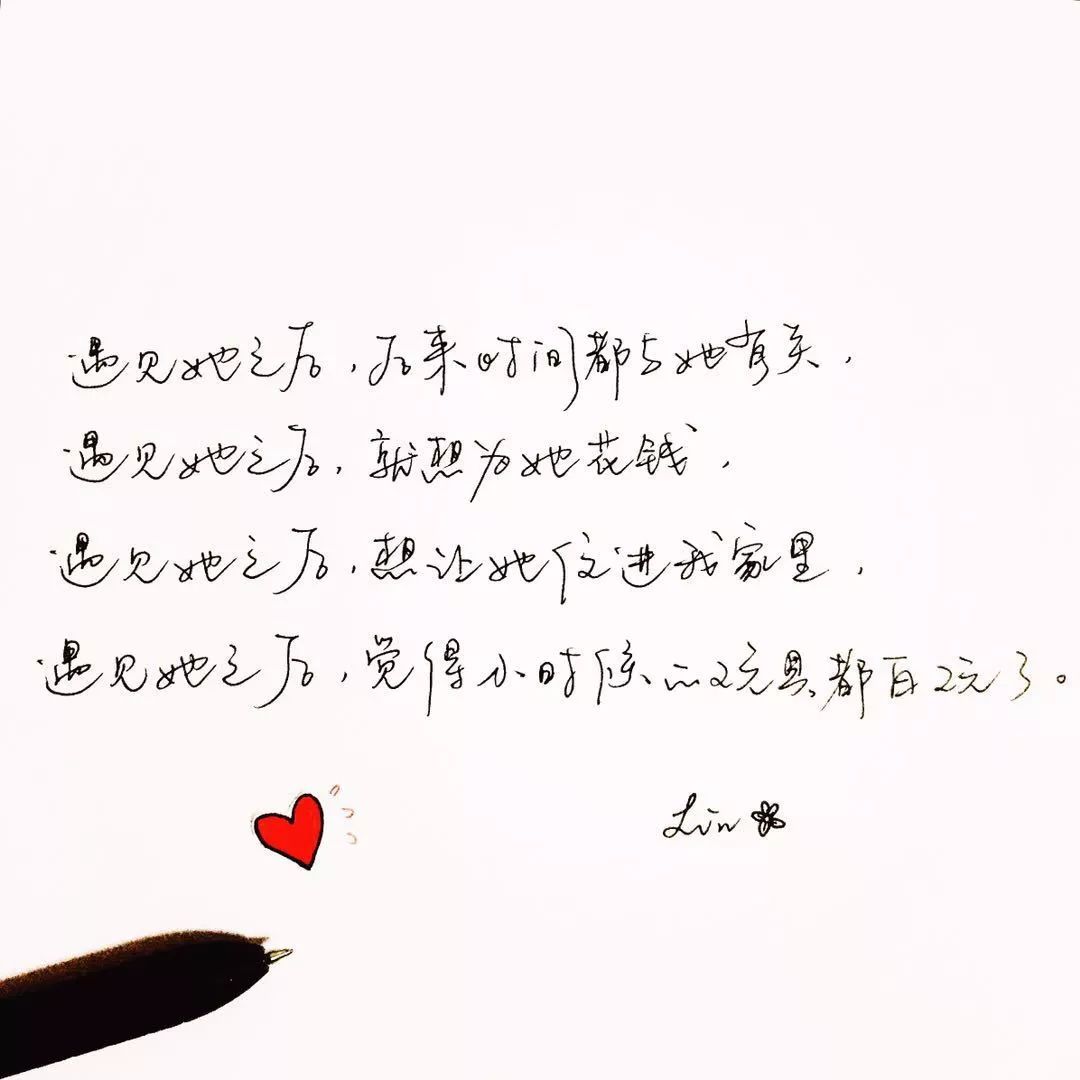 遇见她之后,后来时间都与她有关,
遇见她之后,就想为她花钱,
遇见她之后,想让她住进我家里,
遇见她之后,觉得小时候的玩具都白玩了。
Lin